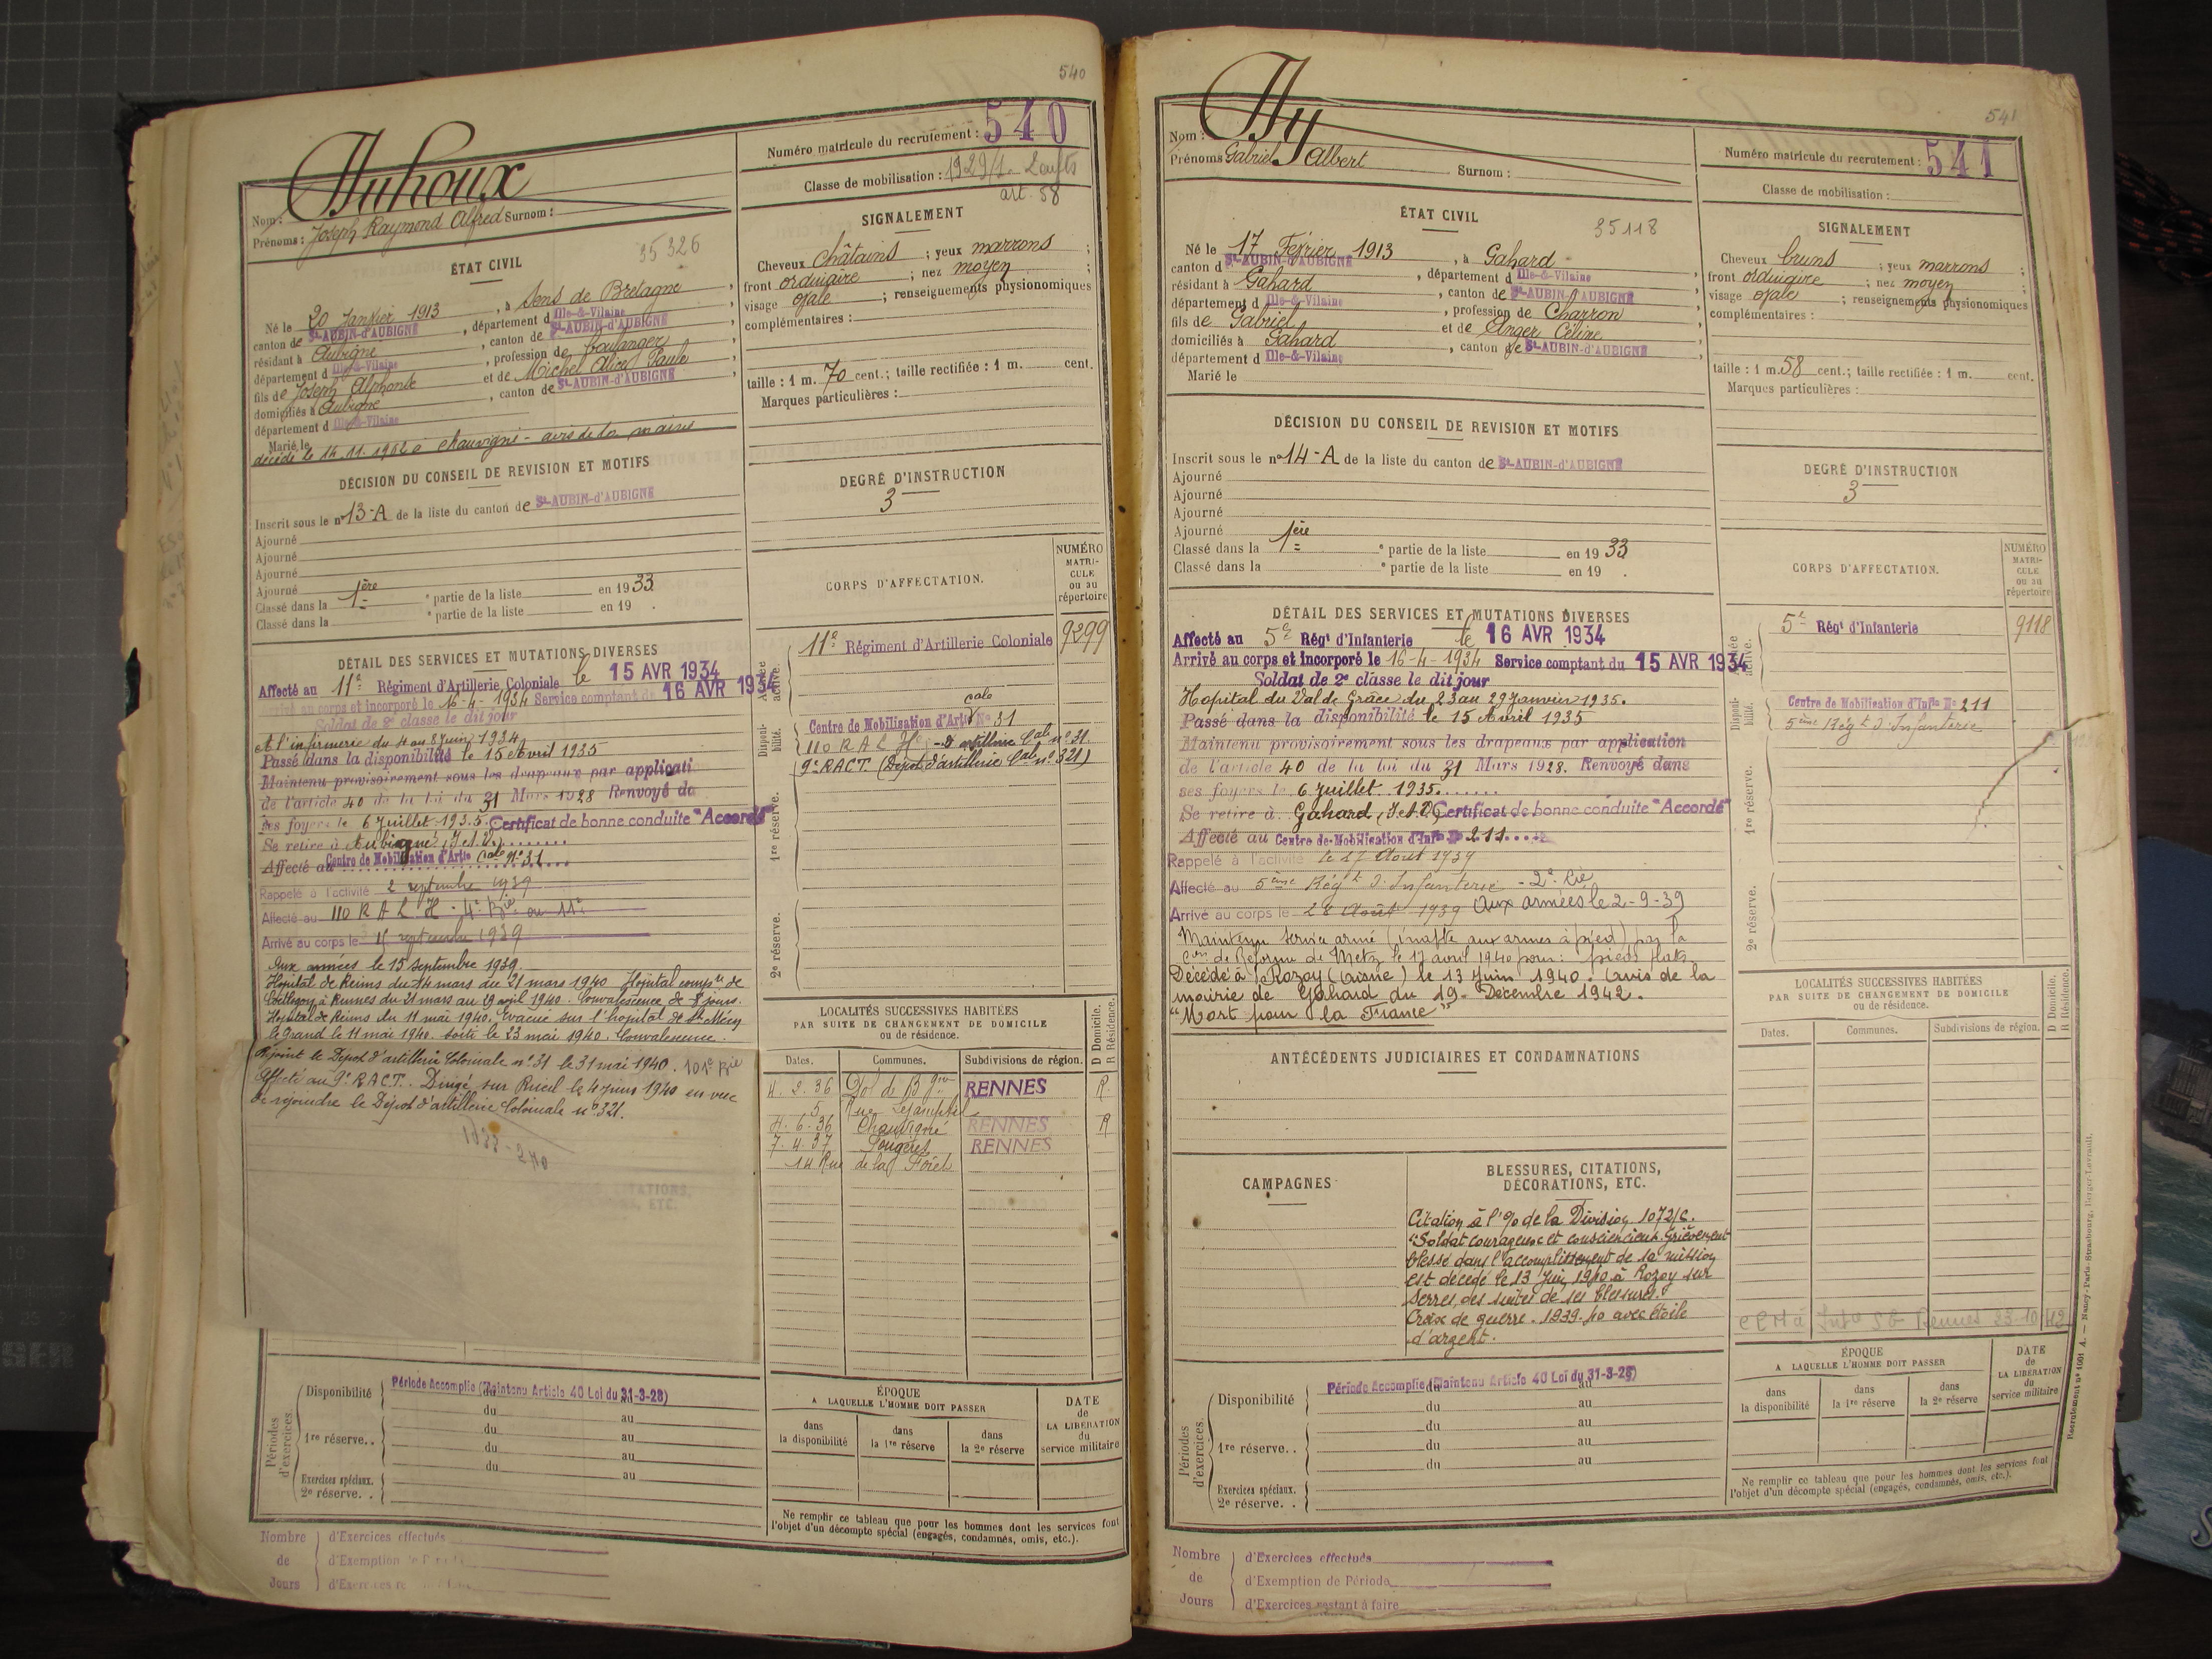 540
Nom : Duhoux
Prénoms : Joseph Raymond Alfred Surnom :
Numéro matricule du recrutement : 540
Classe de mobilisation : 1929/1 - 2 enfts
art. 58
35326
ÉTAT CIVIL
Né le 20 Janvier 1913, à Sens de Bretagne,
canton de St-AUBIN-d'AUBIGNÉ, département d Ille-&-Vilaine
résidant à Aubigné, canton de St-AUBIN-d'AUBIGNÉ,
département d Ille-&-Vilaine, profession de boulanger,
fils de Joseph Alphonse et de Michel Alice Paule,
domiciliés à Aubigné, canton de St-AUBIN-d'AUBIGNÉ,
département d Ille-&-Vilaine
Marié le
décédé le 14.11.1962 à Chauvigné - avis de la mairie
SIGNALEMENT
Cheveux châtains ; yeux marrons ;
front ordinaire ; nez moyen ;
visage ovale ; renseignements physionomiques
complémentaires :
taille : 1 m. 70 cent.; taille rectifiée : 1 m. cent.
Marques particulières :
DÉCISION DU CONSEIL DE REVISION ET MOTIFS
Inscrit sous le n° 13-A de la liste du canton de St-AUBIN-d'AUBIGNÉ
Ajourné
Ajourné
Ajourné
Ajourné
Classé dans la 1ère partie de la liste en 1933
Classé dans la e partie de la liste en 19 .
DEGRÉ D'INSTRUCTION
3
CORPS D'AFFECTATION.
NUMÉRO MATRI-CULE ou au répertoire
Armée active.
11e Régiment d'Artillerie Coloniale 9299
Disponi-bilité.
Centre de Mobilisation d'Artie cale N° 31
110 R A L H - D artillerie Cale n° 31
9e RACT (Dépot d'artillerie Cale n° 321)
1re réserve.
2e réserve.
DÉTAIL DES SERVICES ET MUTATIONS DIVERSES
Affecté au 11e Régiment d'Artillerie Coloniale le 15 AVR 1934
Arrivé au corps et incorporé le 16-4-1934 Service comptant de 16 AVR 1934
Soldat de 2e classe le dit jour
A l'infirmerie du 4 au 8 juin 1934
Passé dans la disponibilité le 15 Avril 1935
Maintenu provisoirement sous les drapeaux par applicati
de l'article 40 de la loi du 31 Mars 1928 Renvoyé da
ses foyers le 6 Juillet 1935. Certificat de bonne conduite "Accordé"
Se retire à Aubigné, I et V.
Affecté au Centre de Mobilisation d'Artie cale N° 31
Rappelé à l'activité 2 septembre 1939
Affecté au 110 R A L H - 4e Bie au 11e
Arrivé au corps le septembre 1939
Aux armées le 15 septembre 1939.
Hôpital de Reims du 14 mars au 21 mars 1940 Hôpital compre de
à Rennes du 21 mars au 19 avril 1940. Convalescence de 8 jours.
Hôpital de Reims du 11 mai 1940. Evacué sur l'hôpital de St Méen
le Grand le 11 mai 1940. sorti le 23 mai 1940. Convalescence.
Rejoint le Dépot d'artillerie Coloniale n° 31 le 31 mai 1940. 101e Bie
Affecté au 9e RACT. Dirigé sur Rueil le 4 juin 1940 en vue
de rejoindre le Dépot d'artillerie Coloniale n° 321.
LOCALITÉS SUCCESSIVES HABITÉES
PAR SUITE DE CHANGEMENT DE DOMICILE
ou de résidence.
D Domicile. R Résidence.
Dates. Communes. Subdivisions de région.
4. 2. 36 Dol de Bgne RENNES R.
5 Rue Lejamptel
4. 6. 36 Chauvigné RENNES R
7. 4. 37 Fougères RENNES
14 Rue de la Forêt
Périodes d'exercices.
Disponibilité Période Accomplie (Maintenu Article 40 Loi du 31-3-28)
du au
1re réserve. . du au
du au
du au
Exercices spéciaux.
2e réserve. .
ÉPOQUE
A LAQUELLE L'HOMME DOIT PASSER
dans la disponibilité
dans la 1re réserve
dans la 2e réserve
DATE de LA LIBÉRATION du service militaire
Ne remplir ce tableau que pour les hommes dont les services font
l'objet d'un décompte spécial (engagés, condamnés, omis, etc.).
Nombre de Jours
d'Exercices effectués
d'Exemption de
d'Exercices
541
Nom : Dy
Prénoms Gabriel Albert Surnom :
Numéro matricule du recrutement : 541
Classe de mobilisation :
35118
ÉTAT CIVIL
Né le 17 Février 1913, à Gahard,
canton d St-AUBIN-d'AUBIGNÉ, département d Ille-&-Vilaine
résidant à Gahard, canton de St-AUBIN-d'AUBIGNÉ,
département d Ille-&-Vilaine, profession de Charron,
fils de Gabriel et de Anger Céline,
domiciliés à Gahard, canton de St-AUBIN-d'AUBIGNÉ,
département d Ille-&-Vilaine
Marié le
SIGNALEMENT
Cheveux bruns ; yeux marrons ;
front ordinaire ; nez moyen ;
visage ovale ; renseignements physionomiques
complémentaires :
taille : 1 m. 58 cent.; taille rectifiée : 1 m. cent.
Marques particulières :
DÉCISION DU CONSEIL DE REVISION ET MOTIFS
Inscrit sous le n° 14-A de la liste du canton de St-AUBIN-d'AUBIGNÉ
Ajourné
Ajourné
Ajourné
Ajourné
Classé dans la 1ère partie de la liste en 1933
Classé dans la e partie de la liste en 19 .
DEGRÉ D'INSTRUCTION
3
CORPS D'AFFECTATION.
NUMÉRO MATRI-CULE ou au répertoire
Armée active.
5e Régt d'Infanterie 9118
Disponi-bilité.
Centre de Mobilisation d'Infie N° 211
5ème Régt d'Infanterie
1re réserve.
2e réserve.
DÉTAIL DES SERVICES ET MUTATIONS DIVERSES
Affecté au 5e Régt d'Infanterie le 16 AVR 1934
Arrivé au corps et incorporé le 16-4-1934 Service comptant du 15 AVR 1934
Soldat de 2e classe le dit jour
Hopital du Val de Grâce du 23 au 29 Janvier 1935.
Passé dans la disponibilité le 15 Avril 1935
Maintenu provisoirement sous les drapeaux par application
de l'article 40 de la loi du 31 Mars 1928. Renvoyé dans
ses foyers le 6 Juillet 1935.
Se retire à Gahard, I et V Certificat de bonne conduite "Accordé"
Affecté au Centre de Mobilisation d'Infie N° 211
Rappelé à l'activité le 27 Août 1939
Affecté au 5ème Régt d'Infanterie - 2e Cie
Arrivé au corps le 28 Août 1939 Aux armées le 2-9-39
Maintenu service armé (inapte aux armes à pied) par la
Con de Réforme de Metz le 17 avril 1940 pour : pieds plats
Décédé à Rozoy (Aisne) le 13 Juin 1940. (avis de la
mairie de Gahard du 19 Décembre 1942.
"Mort pour la France"
ANTÉCÉDENTS JUDICIAIRES ET CONDAMNATIONS
CAMPAGNES
BLESSURES, CITATIONS,
DÉCORATIONS, ETC.
Citation à l'% de la Division 1072/C.
"Soldat courageux et consciencieux. Grièvement
blessé dans l'accomplissement de sa mission
est décédé le 13 Juin 1940 à Rozoy sur
Serres, des suites de ses blessures.
Croix de guerre. 1939.40 avec étoile
d'argent.
LOCALITÉS SUCCESSIVES HABITÉES
PAR SUITE DE CHANGEMENT DE DOMICILE
ou de résidence.
D Domicile. R Résidence.
Dates. Communes. Subdivisions de région.
Rennes 23-10-42
Périodes d'exercices.
Disponibilité Période Accomplie (Maintenu Article 40 Loi du 31-3-28)
du au
du au
1re réserve. . du au
du au
Exercices spéciaux.
2e réserve. .
ÉPOQUE
A LAQUELLE L'HOMME DOIT PASSER
dans la disponibilité
dans la 1re réserve
dans la 2e réserve
DATE de LA LIBÉRATION du service militaire
Ne remplir ce tableau que pour les hommes dont les services font
l'objet d'un décompte spécial (engagés, condamnés, omis, etc.).
Recrutement n° 1061 A. — Nancy-Paris-Strasbourg, Berger-Levrault.
Nombre de Jours
d'Exercices effectués
d'Exemption de Période
d'Exercices restant à faire